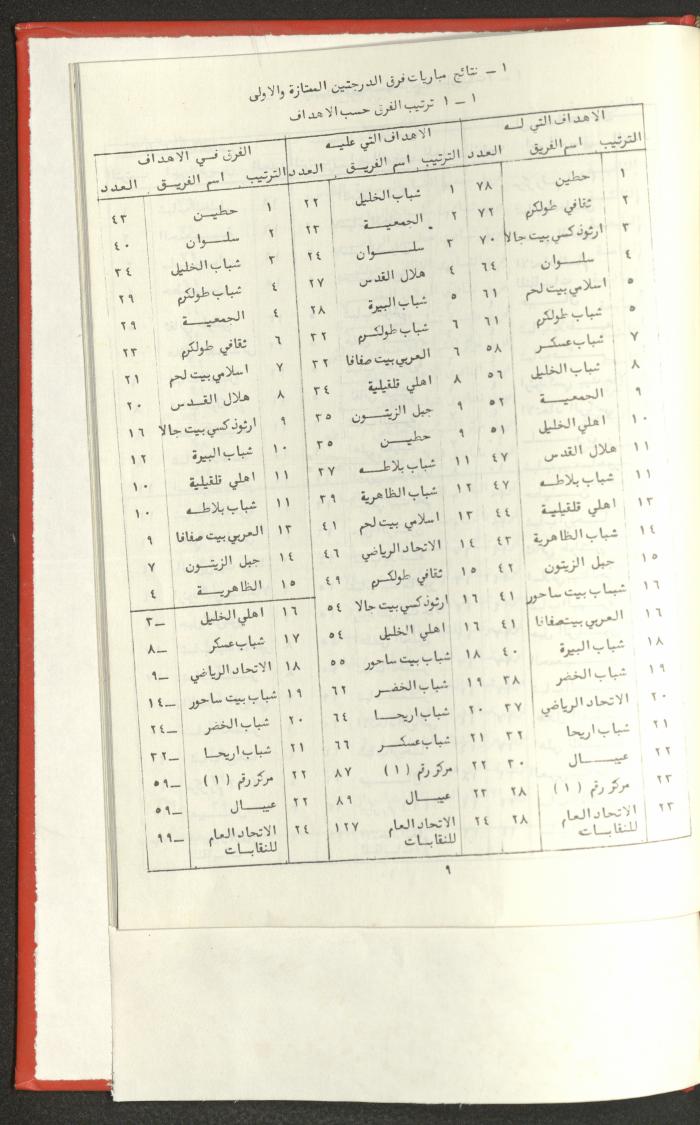 ١ – نتائج مباريات فرق الدرجتين الممتازة والاولى
١ – ١ ترتيب الفرق حسب الاهداف
الاهداف التي لـه الاهداف التي عليـه الفرق فـي الاهداف
الترتيب اسم الفريق العدد الترتيب اسم الفريـق العدد الترتيب اسم الفريـق العدد
١ حطين ٧٨ ١ شباب الخليل ٢٢ ١ حطيـن ٤٣
٢ ثقافي طولكرم ٧٢ ٢ الجمعيـة ٢٣ ٢ سلـوان ٤٠
٣ ارثوذكسي بيت جالا ٧٠ ٣ سلـوان ٢٤ ٣ شباب الخليل ٣٤
٤ سلـوان ٦٤ ٤ هلال القدس ٢٧ ٤ شباب طولكرم ٢٩
٥ اسلامي بيت لحم ٦١ ٥ شباب البيرة ٢٨ ٤ الجمعيـة ٢٩
٥ شباب طولكرم ٦١ ٦ شباب طولكـرم ٣٢ ٦ ثقافي طولكرم ٢٣
٧ شباب عسكـر ٥٨ ٦ العربي بيت صفافا ٣٢ ٧ اسلامي بيت لحم ٢١
٨ شباب الخليل ٥٦ ٨ اهلي قلقيلية ٣٤ ٨ هلال القـدس ٢٠
٩ الجمعيـة ٥٢ ٩ جبل الزيتـون ٣٥ ٩ ارثوذكسي بيت جالا ١٦
١٠ اهلي الخليل ٥١ ٩ حطيـن ٣٥ ١٠ شباب البيرة ١٢
١١ هلال القدس ٤٧ ١١ شباب بلاطـه ٣٧ ١١ اهلي قلقيلية ١٠
١١ شباب بلاطـه ٤٧ ١٢ شباب الظاهرية ٣٩ ١١ شباب بلاطـه ١٠
١٣ اهلي قلقيليـة ٤٤ ١٣ اسلامي بيت لحم ٤١ ١٣ العربي بيت صفافا ٩
١٤ شباب الظاهرية ٤٣ ١٤ الاتحاد الرياضي ٤٦ ١٤ جبل الزيتـون ٧
١٥ جبل الزيتون ٤٢ ١٥ ثقافي طولكـرم ٤٩ ١٥ الظاهريـة ٤
١٦ شباب بيت ساحور ٤١ ١٦ ارثوذكسي بيت جالا ٥٤ ١٦ اهلي الخليل –٣
١٦ العربي بيت صفافا ٤١ ١٦ اهلي الخليل ٥٤ ١٧ شباب عسكر –٨
١٨ شباب البيرة ٤٠ ١٨ شباب بيت ساحور ٥٥ ١٨ الاتحاد الرياضي –٩
١٩ شباب الخضر ٣٨ ١٩ شباب الخضـر ٦٢ ١٩ شباب بيت ساحور –١٤
٢٠ الاتحاد الرياضي ٣٧ ٢٠ شباب اريحـا ٦٤ ٢٠ شباب الخضر –٢٤
٢١ شباب اريحا ٣٢ ٢١ شباب عسكـر ٦٦ ٢١ شباب اريحـا –٣٢
٢٢ عيبـال ٣٠ ٢٢ مركز رقم (١) ٨٧ ٢٢ مركز رقم (١) –٥٩
٢٣ مركز رقم (١) ٢٨ ٢٣ عيبـال ٨٩ ٢٢ عيبـال –٥٩
٢٣ الاتحاد العام ٢٨ ٢٤ الاتحاد العام ١٢٧ ٢٤ الاتحاد العام –٩٩
للنقابـات للنقابـات للنقابـات
٩